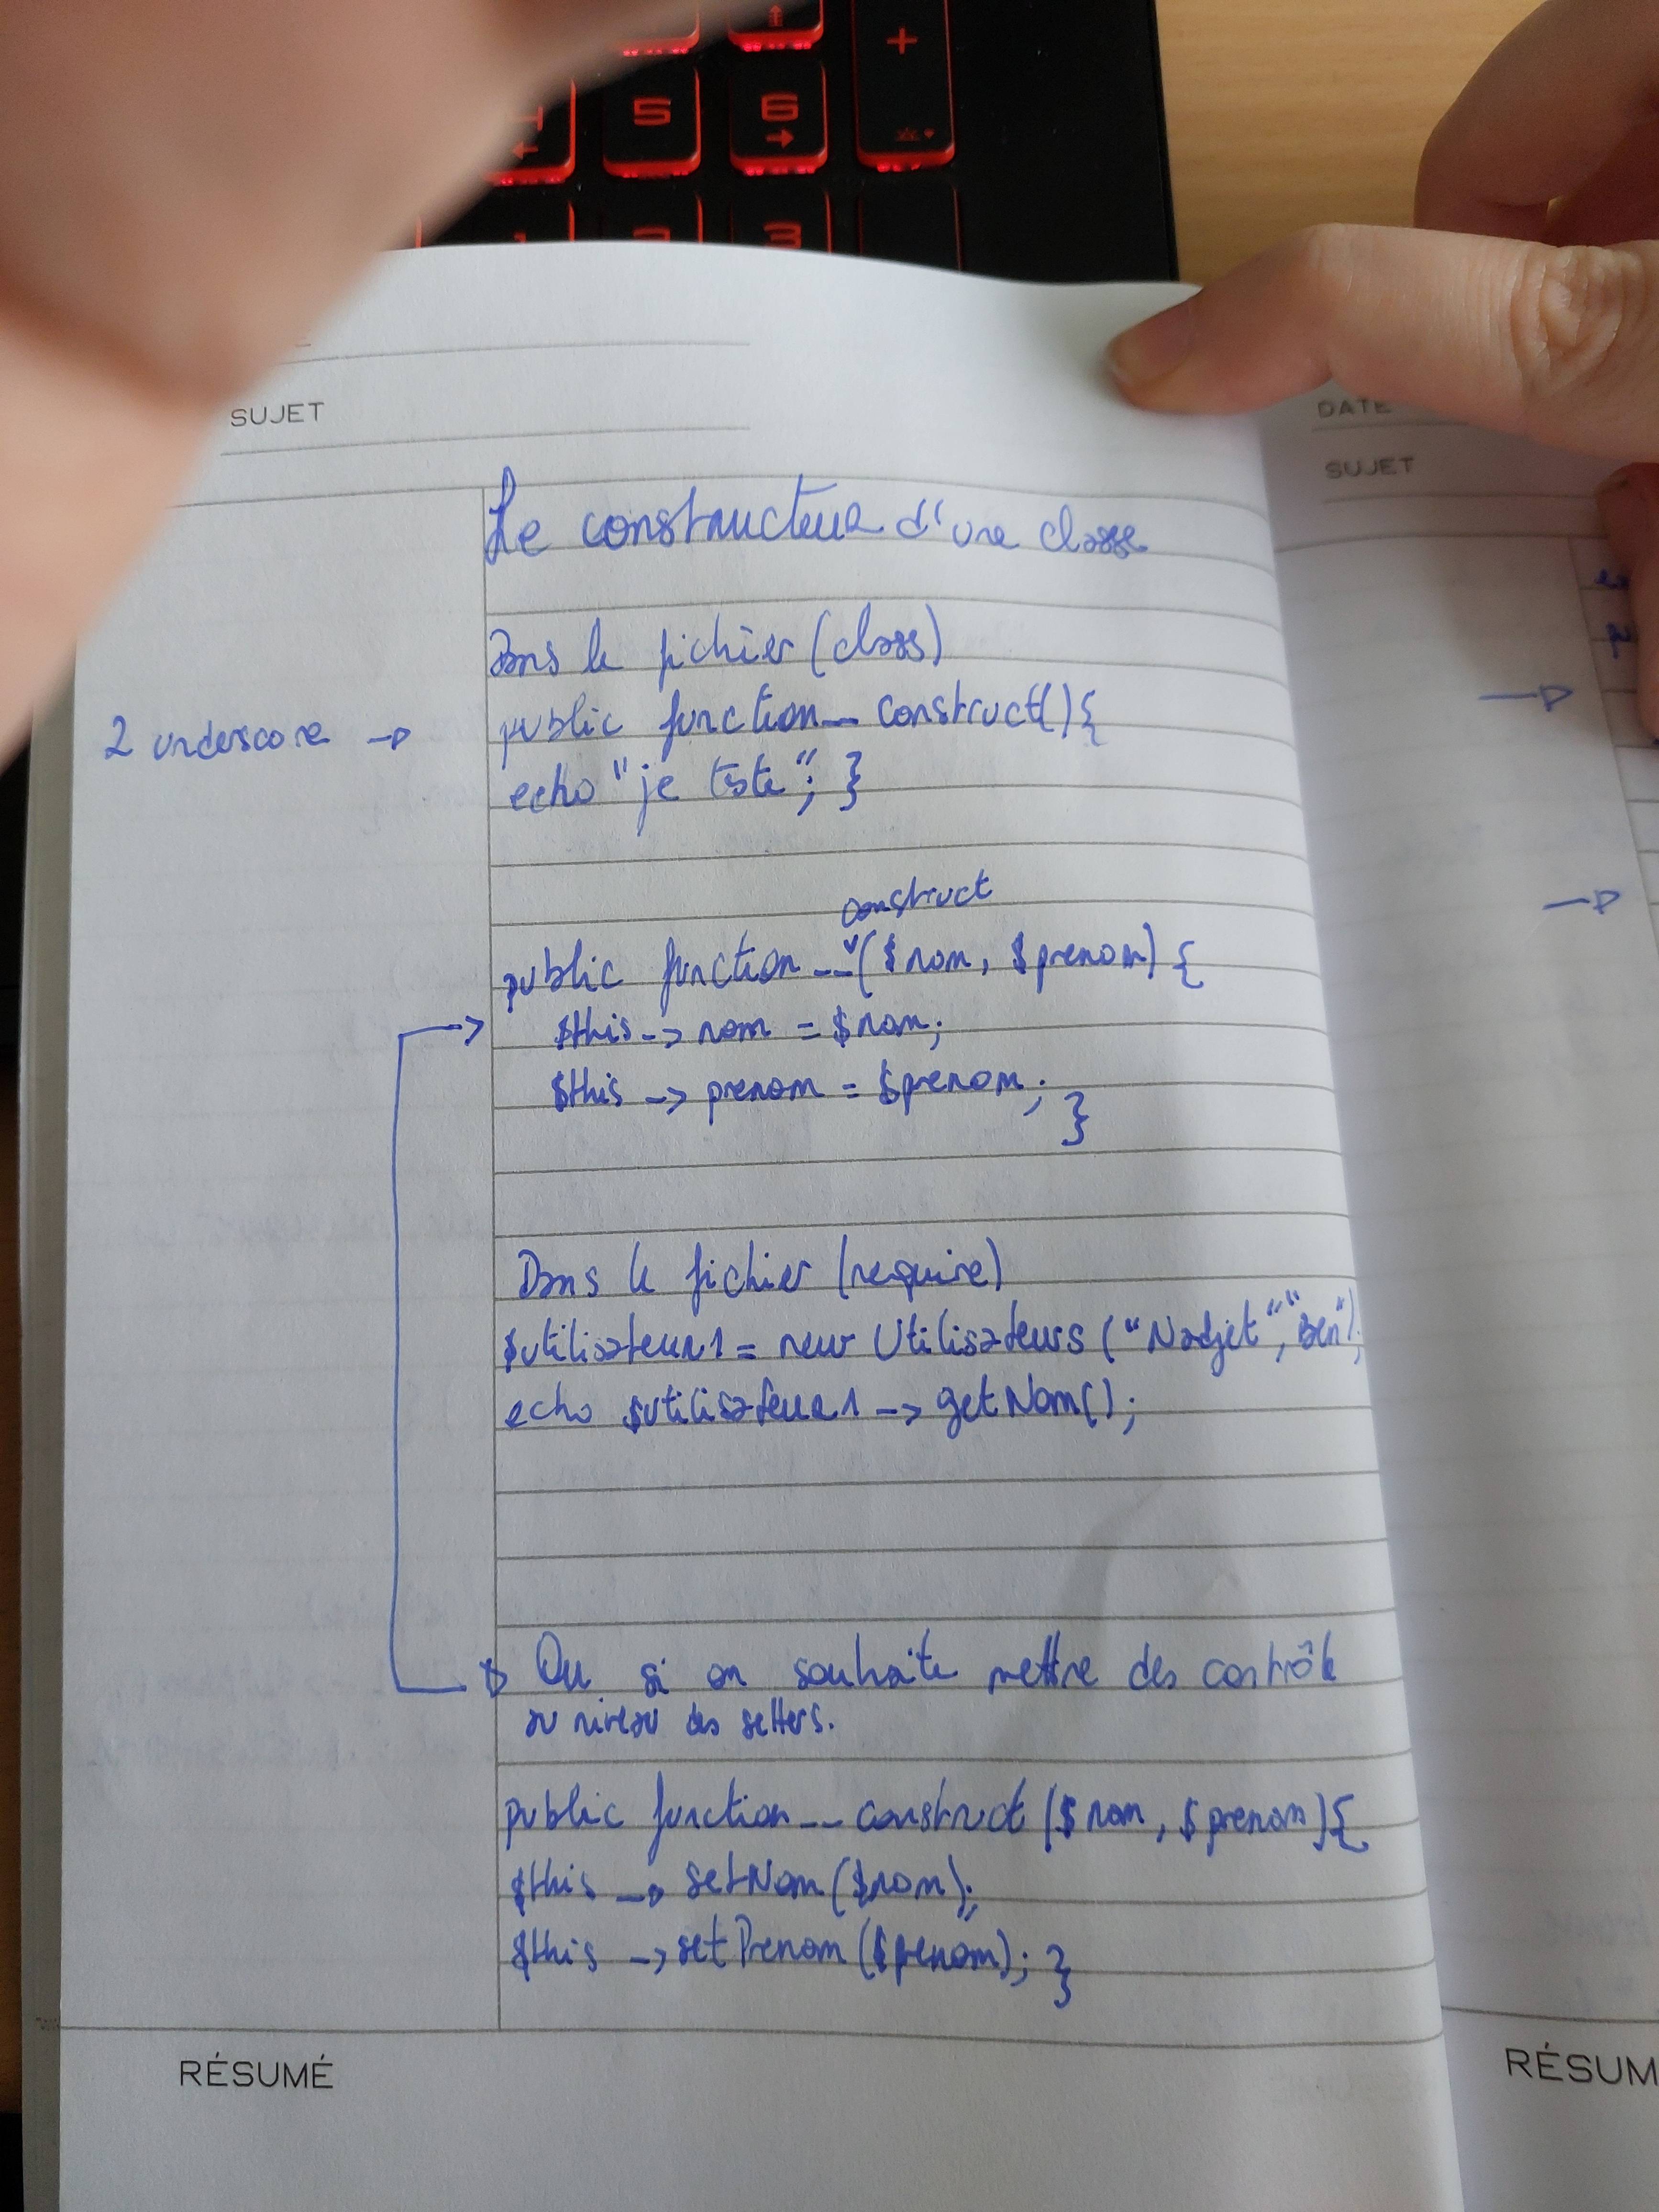 5
6
+
3
SUJET
DATE
SUJET
Le constructeur d'une classe
Dans le fichier (class)
2 underscore →
public function __ construct() {
echo "je teste"; }
construct
public function __ ($nom, $prenom) {
$this -> nom = $nom;
$this -> prenom = $prenom; }
Dans le fichier (require)
$utilisateur1 = new Utilisateurs ("Nadjet", "Ben");
echo $utilisateur1 -> getNom();
Ou si on souhaite mettre des contrôle
au niveau des setters.
public function __ construct ($nom, $prenom) {
$this -> setNom ($nom);
$this -> setPrenom ($prenom); }
RÉSUMÉ
RÉSUM